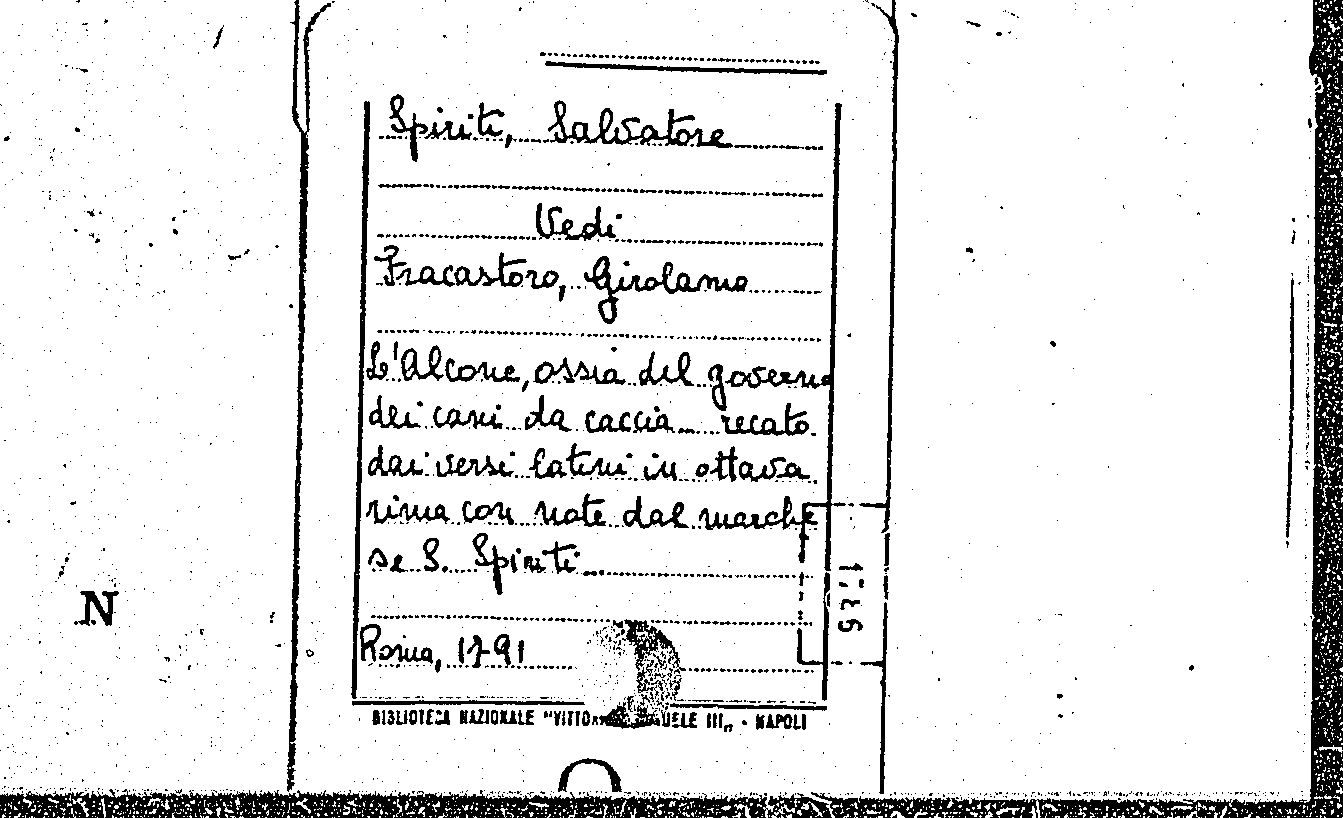 Spiriti, Salvatore
Vedi
Fracastoro, Girolamo
L'Alcone, ossia del governo
dei cani da caccia... recato
dai versi latini in ottava
rima con note dal marche
se S. Spiriti...
Roma, 1791
BIBLIOTECA NAZIONALE "VITTORIO EMANUELE III„ - NAPOLI
N